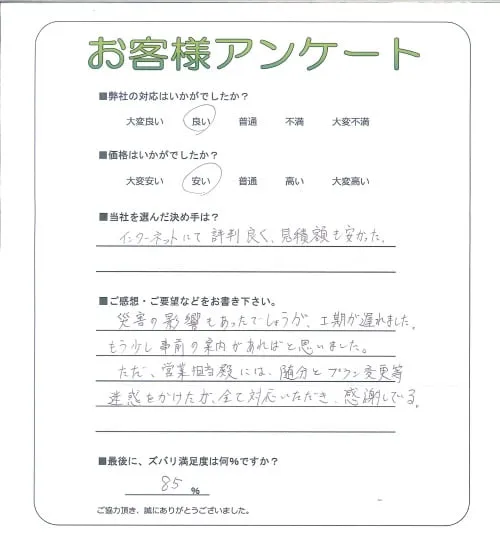 お客様アンケート
■弊社の対応はいかがでしたか？
大変良い 良い 普通 不満 大変不満
■価格はいかがでしたか？
大変安い 安い 普通 高い 大変高い
■当社を選んだ決め手は？
インターネットにて評判良く、見積額も安かった。
■ご感想・ご要望などをお書き下さい。
災害の影響もあったでしょうが、工期が遅れました。
もう少し事前の案内があればと思いました。
ただ、営業担当殿には、随分とプラン変更等
迷惑をかけた方、全て対応いただき、感謝してる。
■最後に、ズバリ満足度は何％ですか？
85 ％
ご協力頂き、誠にありがとうございました。